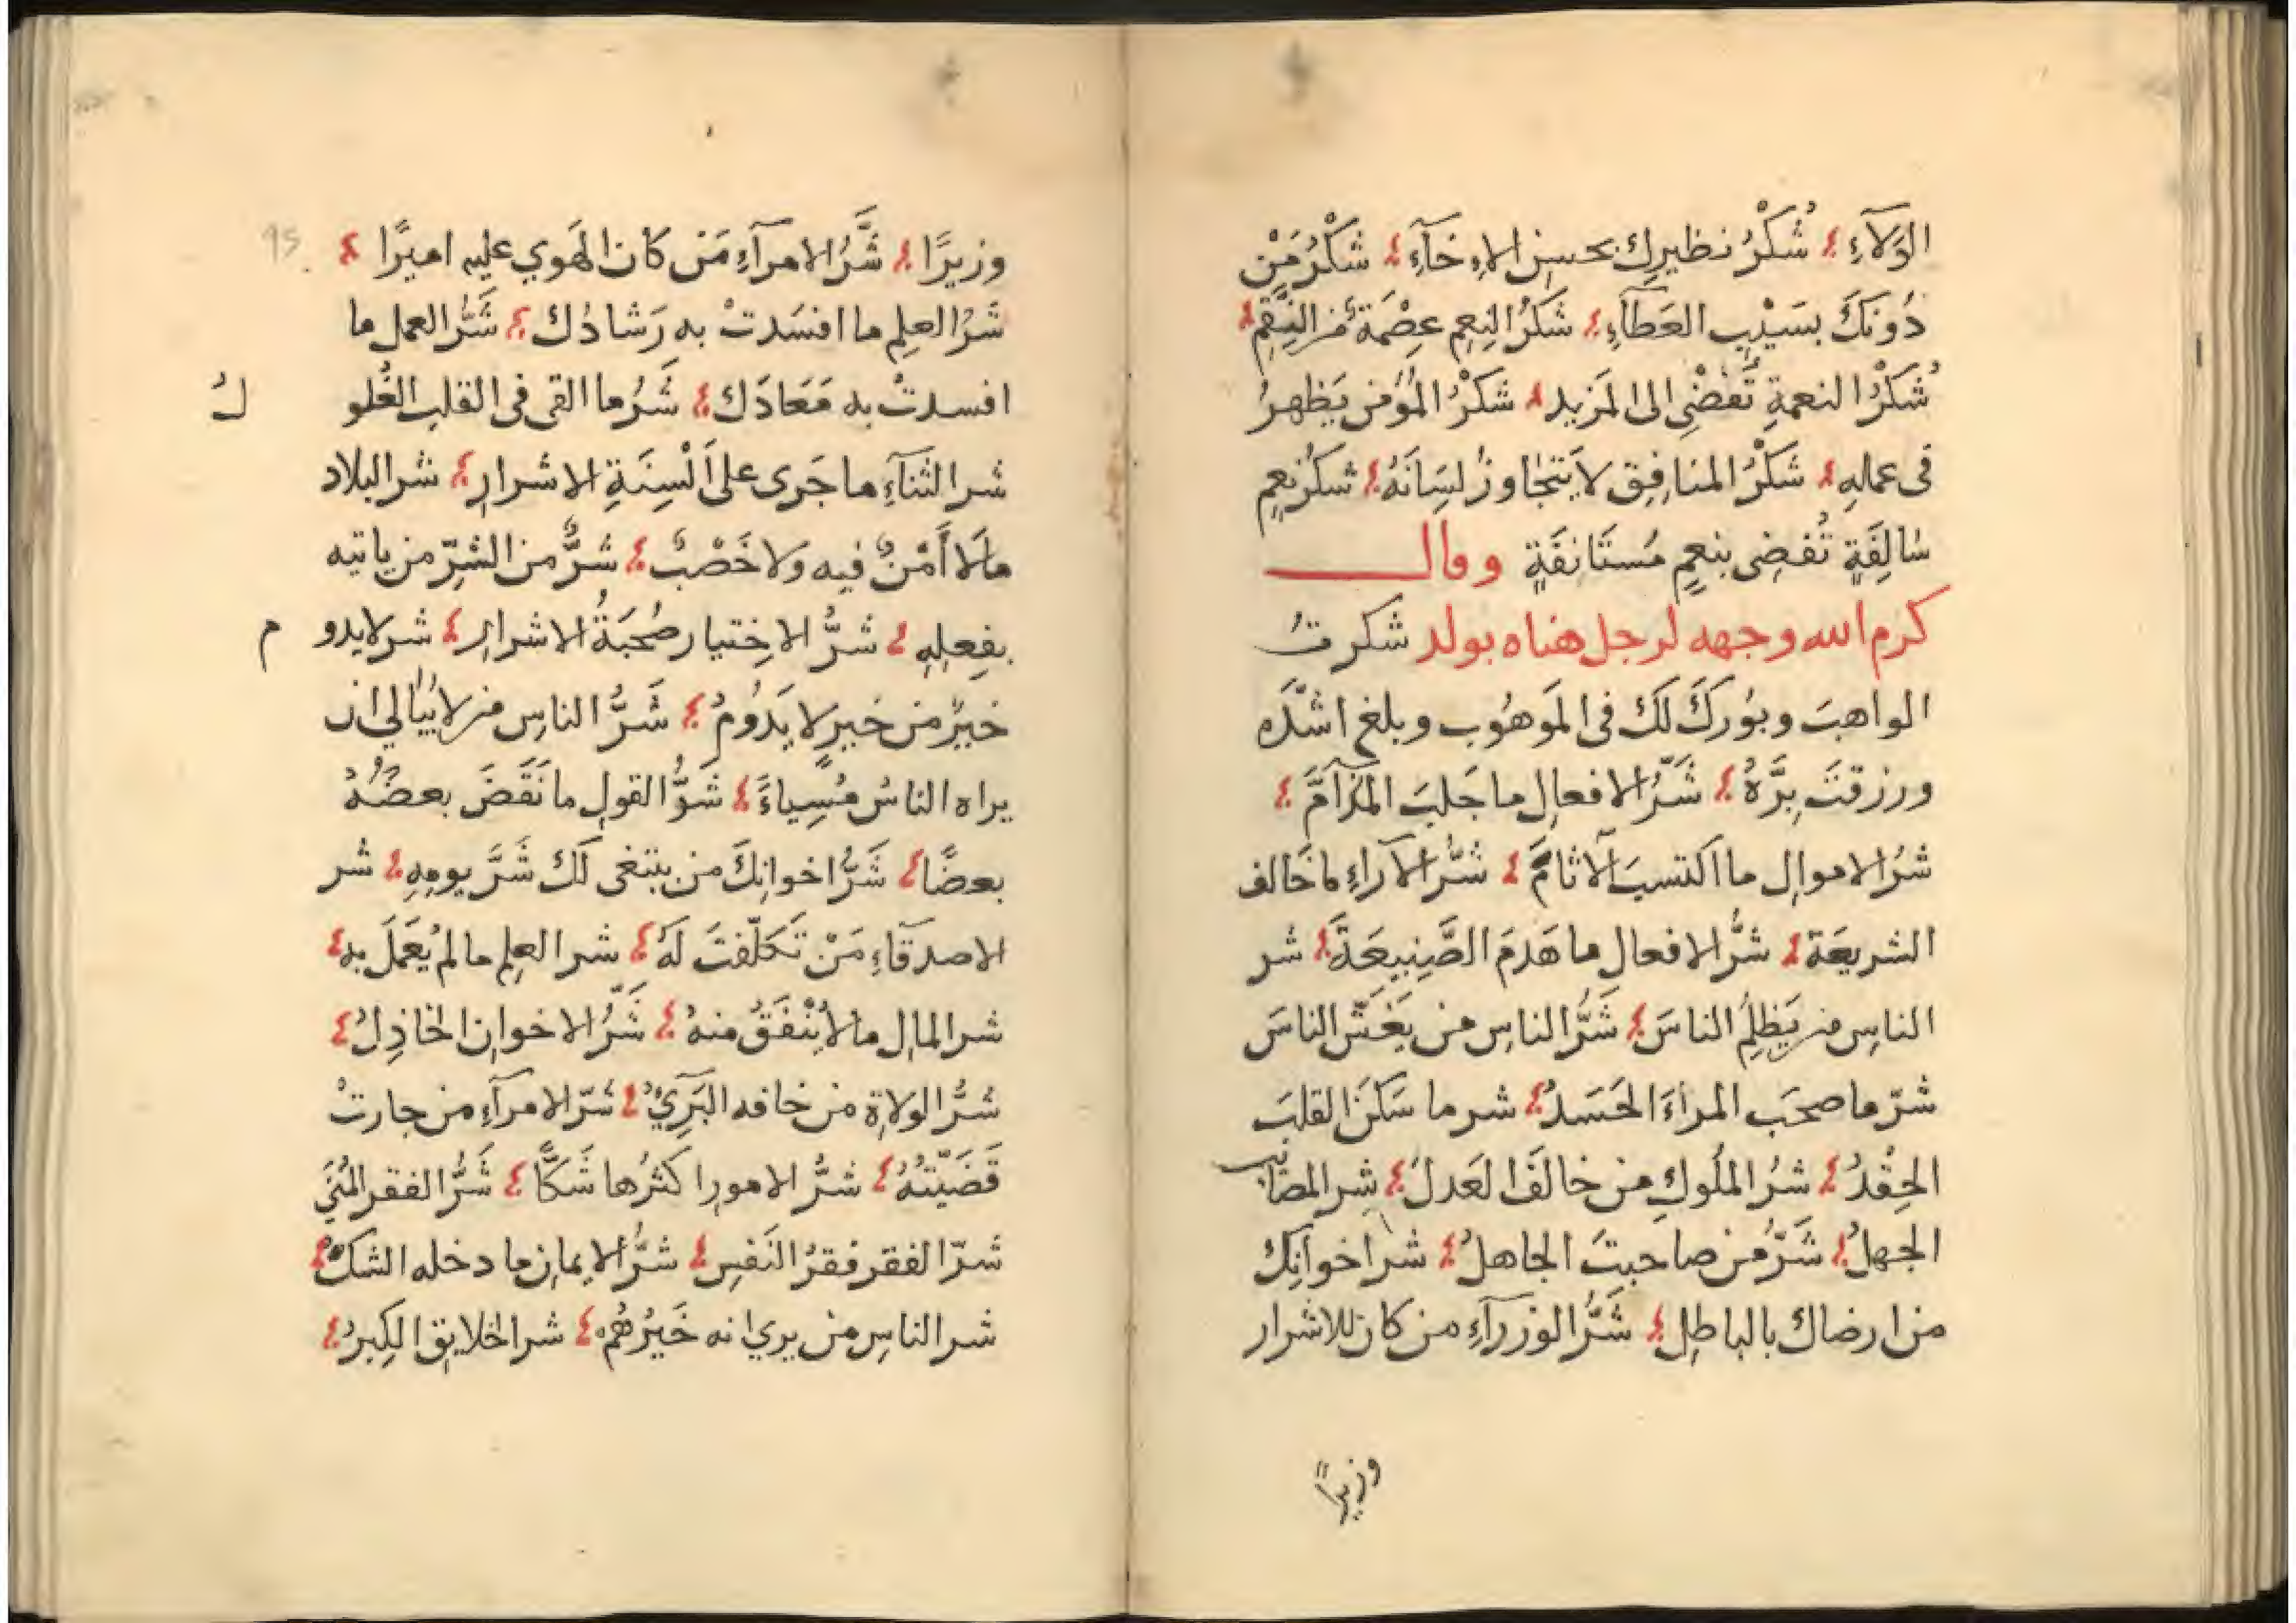 الوَلآءِ شُكْرُ نظيرِك بحسنِ الاِخآءِ شكْرُ مَنْ
دُونَكَ بسَيْبِ العَطآءِ شَكْرُ النِعمِ عِصْمَةٌ مِن النِّقَمِ
شُكْرُ النعمةِ تُفضْي الى المَزيد شكْرُ المُؤْمن يَظهرُ
فى عملهِ شَكْرُ المنافِق لا يَتجاوزُ لسِانَهُ شكرُ نِعمٍ
سالِفَةٍ تُفضِى بنِعمٍ مُستَانفَةٍ وقال
كرم الله وجهه لرجل هناه بولد شكرتُ
الواهبَ وبُورِكَ لكَ فى المَوهُوب وبلغ اشدَّه
ورزقتَ بِرَّهُ شَرُّ الافعالِ ما جَلبَ المذآمَّ
شرُ الاموالِ ما اكتسبَ الآثامَ شرُّ الآراءِ ما خَالف
الشريعَة شرُّ الافعالِ ما هَدمَ الصَّنِيعَةَ شر
الناسِ من يَظلِمُ الناسَ شَرُّ الناسِ من يَغشّ الناسَ
شرّ ما صحَب المراءَ الحَسَدُ شر ما سَكنَ القلبَ
الحِقْدُ شرُ المُلوكِ من خالَفَ العَدلَ شر المصائب
الجهلُ شَرُّ من صاحبتَ الجاهلُ شر اخوانِك
من ارضاك بالباطِل شَرُّ الوزرآءِ من كان للاشرار
وزيرًا
وزيرًا شَرُّ الامرآءِ مَن كان الهَوي عليه اميرًا
95
شَرُ العلِم ما افسَدتْ به رَشادُك شَرُّ العمل ما
افسدتْ به مَعَادَك شَرُ ما القى فى القلب الغُلو لُ
شر الثَنآءِ ما جَرى على اَلْسِنَةِ الاشرارِ شر البلاد
مالا أَمْنٌ فيه ولا خَصْبٌ شرٌّ من الشرِّ من ياتيه
بفِعلِهِ شرُّ الاِختيار صُحبَةُ الاشرارِ شر لا يدو م
خيرٌ من خيرٍ لا يَدُومُ شَرُّ الناسِ من لا يُبالي ان
يراه الناسُ مُسِياءً شرُّ القولِ ما نَقَضَ بعضُهُ
بعضًا شَرُّ اخوانِكَ من يبتغى لكَ شَرَّ يومِهِ شر
الاصدقآءِ مَنْ تَكلّفتَ لَهُ شر العلِم ما لم يُعمَلَ به
شر المالِ ما لا يُنْفَقُ منهُ شَرُّ الاخوانِ الخاذِلُ
شرُّ الولاةِ من خافه البَرِيُ شَرّ الامرآءِ من جارتْ
قَضَيّتُهُ شرُّ الامورِ اكثرُها شَكًّا شَرُّ الفقر المُنَي
شَرّ الفقر فقرُ النَفسِ شرُّ الايمانِ ما دخله الشكُ
شر الناسِ من يري انه خَيْرُهُم شر الخلايقِ الكِبرُ